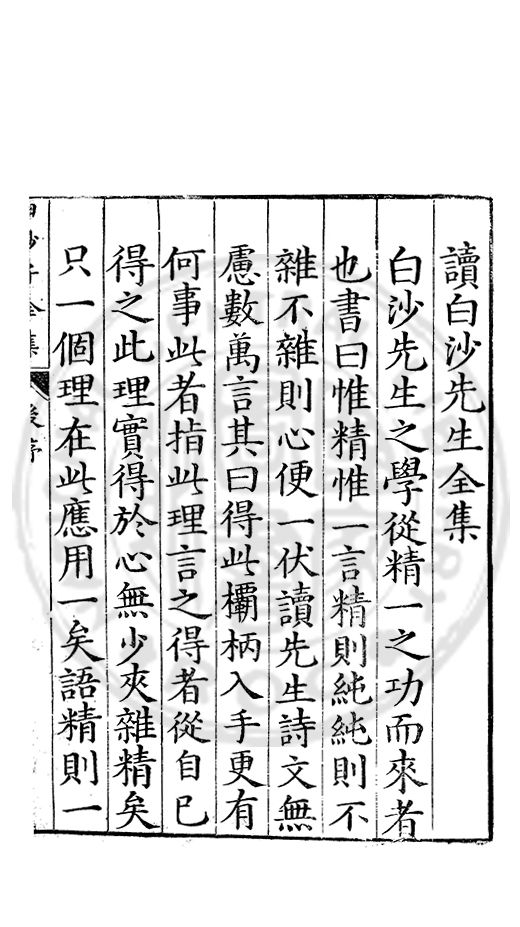 讀白沙先生全集
白沙先生之學從精一之功而來者
也書曰惟精惟一言精則純純則不
雜不雜則心便一伏讀先生詩文無
慮數萬言其曰得此欛柄入手更有
何事此者指此理言之得者從自已
得之此理實得於心無少夾雜精矣
只一個理在此應用一矣語精則一
白沙子全集 後序